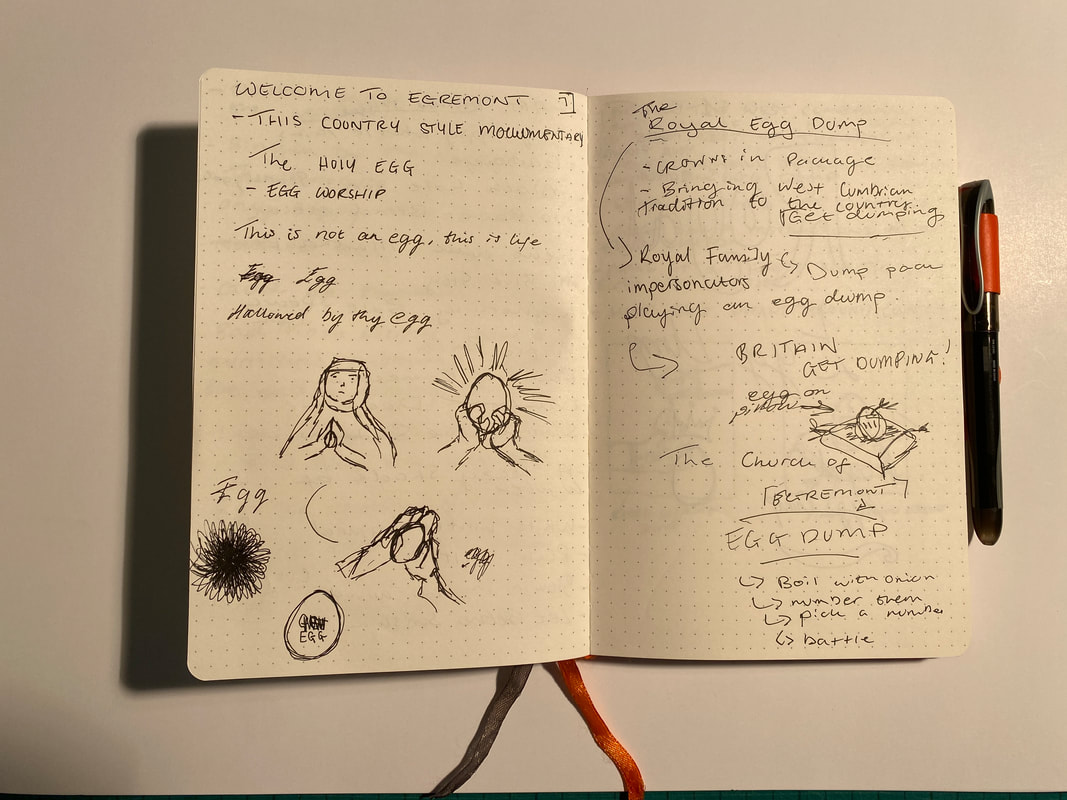 WELCOME TO EGREMONT
- THIS COUNTRY STYLE MOCUMENTARY
The HOLY EGG
- EGG WORSHIP
This is not an egg, this is life
Egg Egg
Hallowed by thy egg
Egg
egg
EGG
The
Royal Egg Dump
- CROWNS in Package
- Bringing West Cumbrian
Tradition to the country
Get dumping
Royal Family
impersonators
playing an egg dump.
Dump pack
BRITAIN
GET DUMPING!
egg on
pillow
The Church of
[EGREMONT]
EGG DUMP
Boil with onion
number them
pick a number
battle